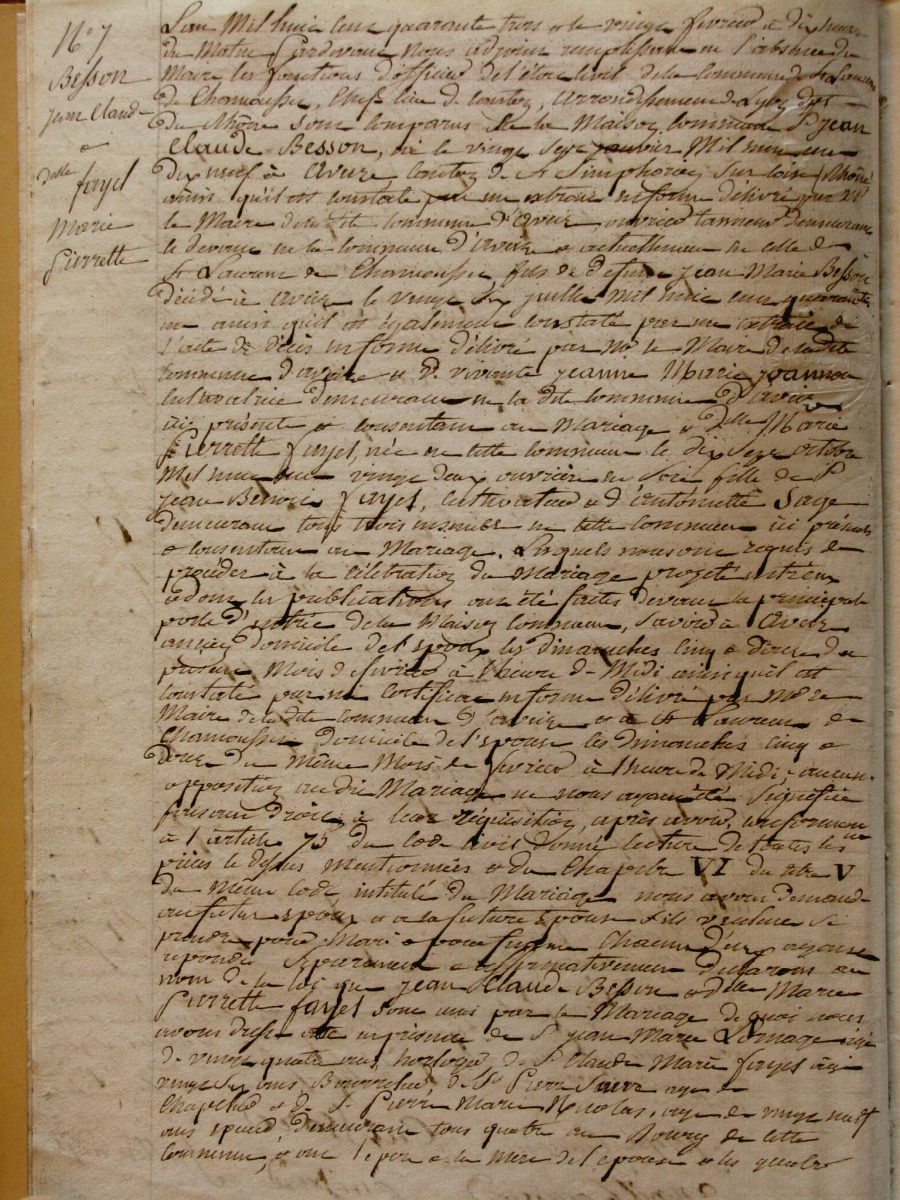 N° 7
Besson
Jean Claude
et
Delle fayel
Marie
Pierrette
L'an Mil huit cent quarante trois et le vingt fevrier à dix heures
du Matin Pardevant Nous adjoint remplissant en l'absence du
Maire les fonctions d'officier de l'état civil de la Commune de St Laurent
de Chamousset, Chef lieu de Canton, arrondissement de Lyon, dépt
du Rhône sont Comparus en la Maison Commune Sr jean
Claude Besson, né le vingt janvier Mil huit cent
dix neuf à Aveize Canton de St Simphorien Sur Coise (Rhône
ainsi qu'il est constaté par un extrait en forme délivré par Mr
le Maire de ladite Commune d'Aveize, ouvrier tanneur demeurant
ci devant en la Commune d'Aveize et actuellement en celle de
St Laurent de Chamousset, fils de Defunt Jean Marie Besson
décédé à Aveize le vingt juillet Mil huit cent quarante
un ainsi qu'il est également constaté par un extrait de
l'acte de décès en forme délivré par Mr le Maire de ladite
Commune d'Aveize et de vivante jeanne Marie joannon
Cultivatrice demeurant en la dite Commune d'Aveize
ici présente et consentant au Mariage & Delle Marie
Pierrette fayel, née en cette Commune le dix Sept octobre
Mil huit cent vingt deux ouvrière en Soie fille de Sr
jean Benoit fayel, Cultivateur et d'antoinette Sage
demeurant tous trois ensemble en cette Commune ici présents
et consentant au Mariage. Lesquels nous ont requis de
procéder à la Célébration du Mariage projeté entr'eux
et dont les publications ont été faites devant la principale
porte d'entrée de la Maison Commune, Savoir à Aveize
ancien domicile de l'époux les dimanches cinq et douze du
présent Mois de fevrier à l'heure de Midi ainsi qu'il est
constaté par un Certificat en forme délivré par Mr le
Maire de ladite Commune d'aveize et à St Laurent de
Chamousset domicile de l'epouse les dimanches cinq et
douze du même Mois de fevrier à l'heure de Midi; aucune
opposition audit Mariage ne nous ayant été Signifiée
faisant droit à leur réquisition, après avoir, conformément
à l'article 75 du Code Civil donné lecture de toutes les
pièces ci dessus mentionnées et du Chapitre VI du titre V
du même Code, intitulé du Mariage nous avons demandé
au futur epoux et à la future Epouse s'ils veulent se
prendre pour Mari et pour femme Chacun d'eux ayant
répondu Séparément et affirmativement déclarons au
nom de la loi que jean Claude Besson et Delle Marie
Pierrette fayel sont unis par le Mariage de quoi nous
avons dressé acte en présence de Sr jean Marie agé
de vingt quatre ans, horloger, de Sr Claude Marie fayel agé
vingt ans de Sr Pierre age de
Chapelier et de Sr Pierre Marie Nicolas, age de vingt neuf
ans demeurant tous quatre au Bourg de cette
Commune, et ont l'époux la mere de l'epouse et les quatre